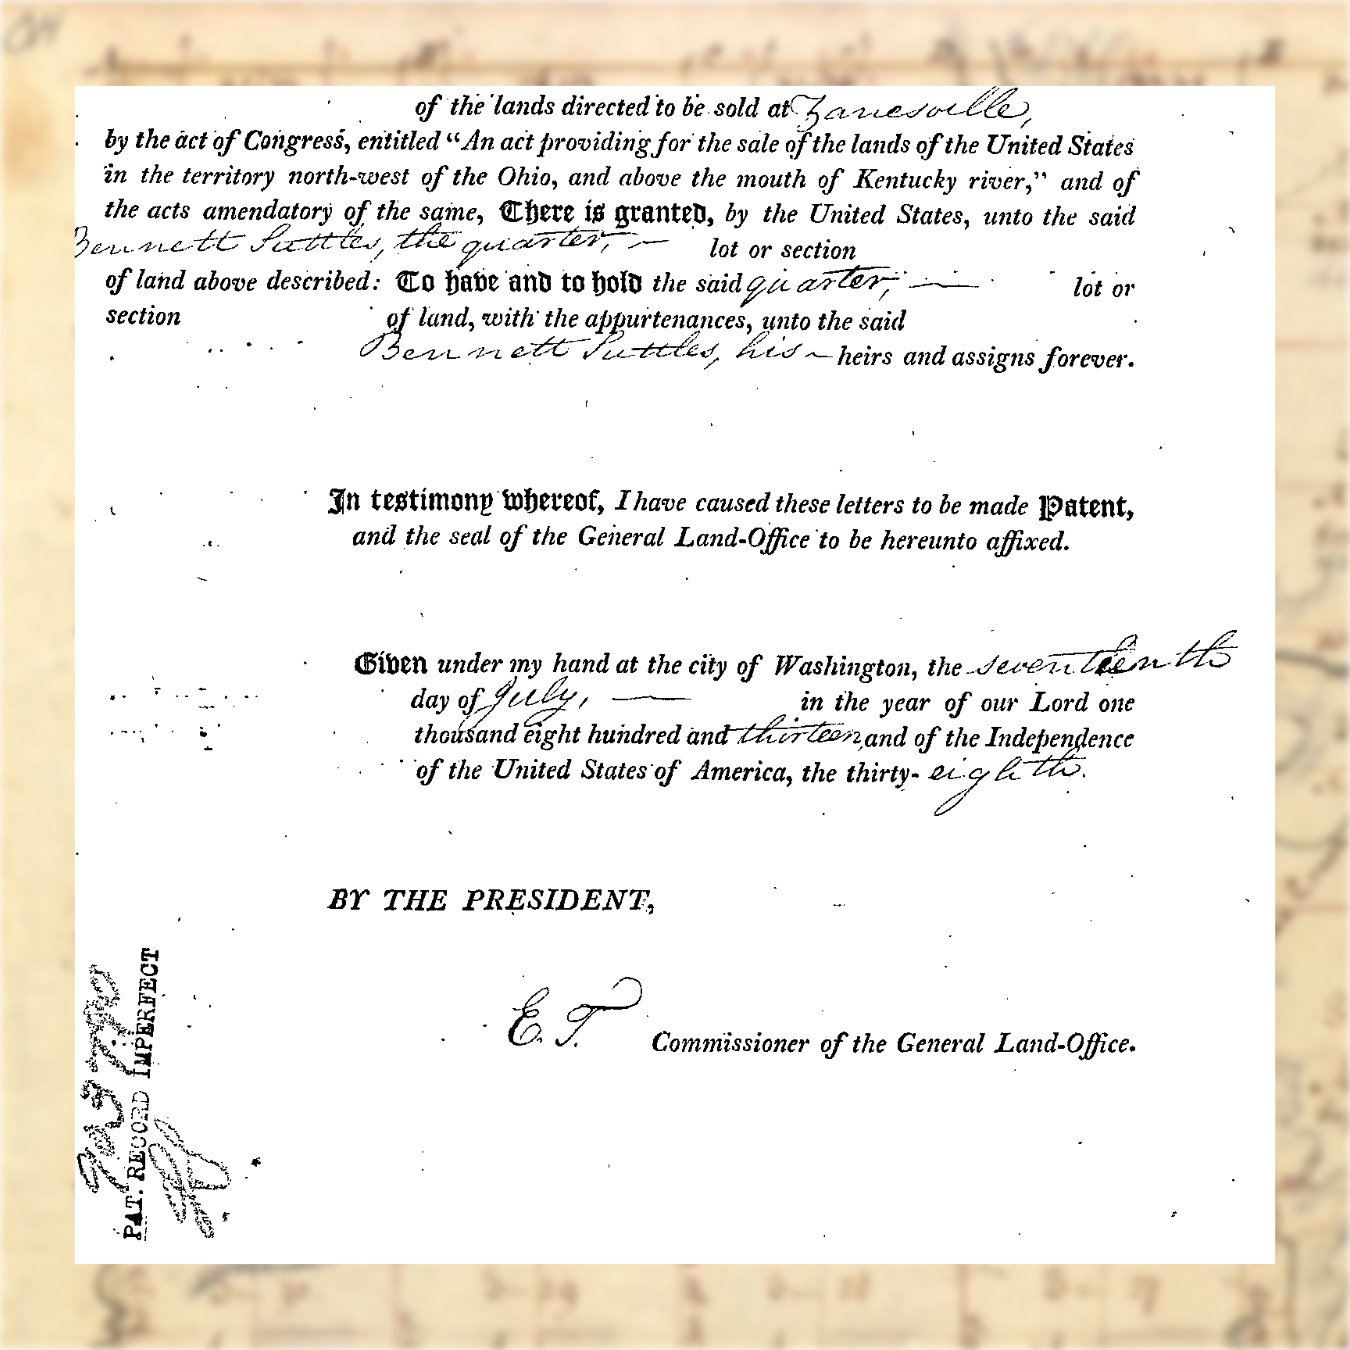 of the lands directed to be sold at Zanesville,
by the act of Congress, entitled "An act providing for the sale of the lands of the United States
in the territory north-west of the Ohio, and above the mouth of Kentucky river," and of
the acts amendatory of the same, There is granted, by the United States, unto the said
Bennett Suttles, the quarter, — lot or section
of land above described: To have and to hold the said quarter, — lot or
section of land, with the appurtenances, unto the said
Bennett Suttles, his — heirs and assigns forever.
In testimony whereof, I have caused these letters to be made Patent,
and the seal of the General Land-Office to be hereunto affixed.
Given under my hand at the city of Washington, the seventeenth
day of July, — in the year of our Lord one
thousand eight hundred and thirteen, and of the Independence
of the United States of America, the thirty- eighth.
BY THE PRESIDENT,
E. T. Commissioner of the General Land-Office.
PAT. RECORD IMPERFECT